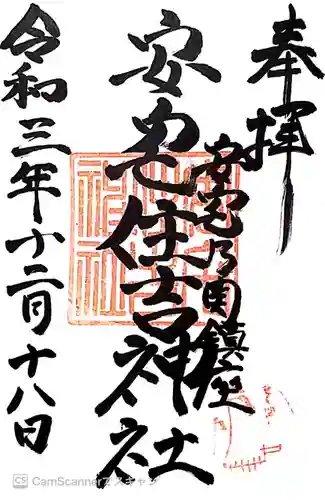 奉拝
安宅乃関鎮座
安宅住吉神社
令和三年十二月十八日
CS CamScannerでスキャン